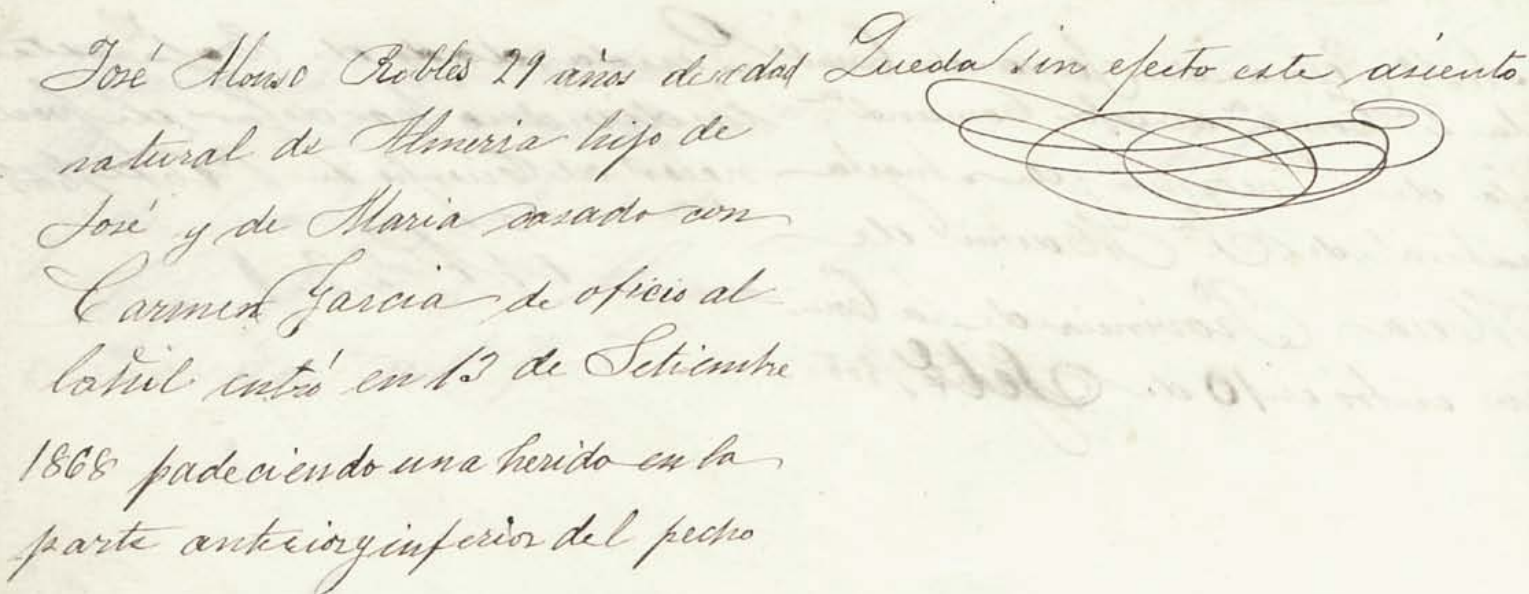 José Alonso Robles 29 años de edad
natural de Almeria hijo de
José y de Maria casado con
Carmen Garcia de oficio al
bañil entró en 13 de Setiembre
1868 padeciendo una herido en la
parte anterior y inferior del pecho
Queda sin efecto este asiento